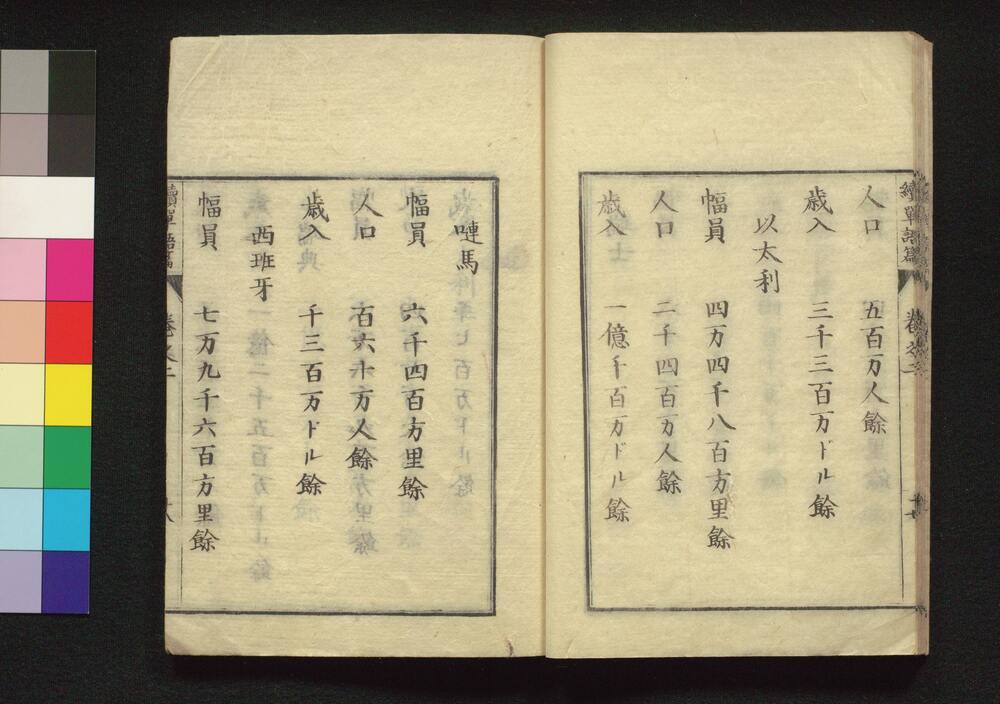 續單語篇 卷之二
人口 五百万人餘
歳入 三千三百万ドル餘
以太利
幅員 四万四千八百方里餘
人口 二千四百万人餘
歳入 一億千百万ドル餘
嗹馬
幅員 六千四百方里餘
人口 百六十万人餘
歳入 千三百万ドル餘
西班牙
幅員 七万九千六百方里餘
續單語篇 卷之二